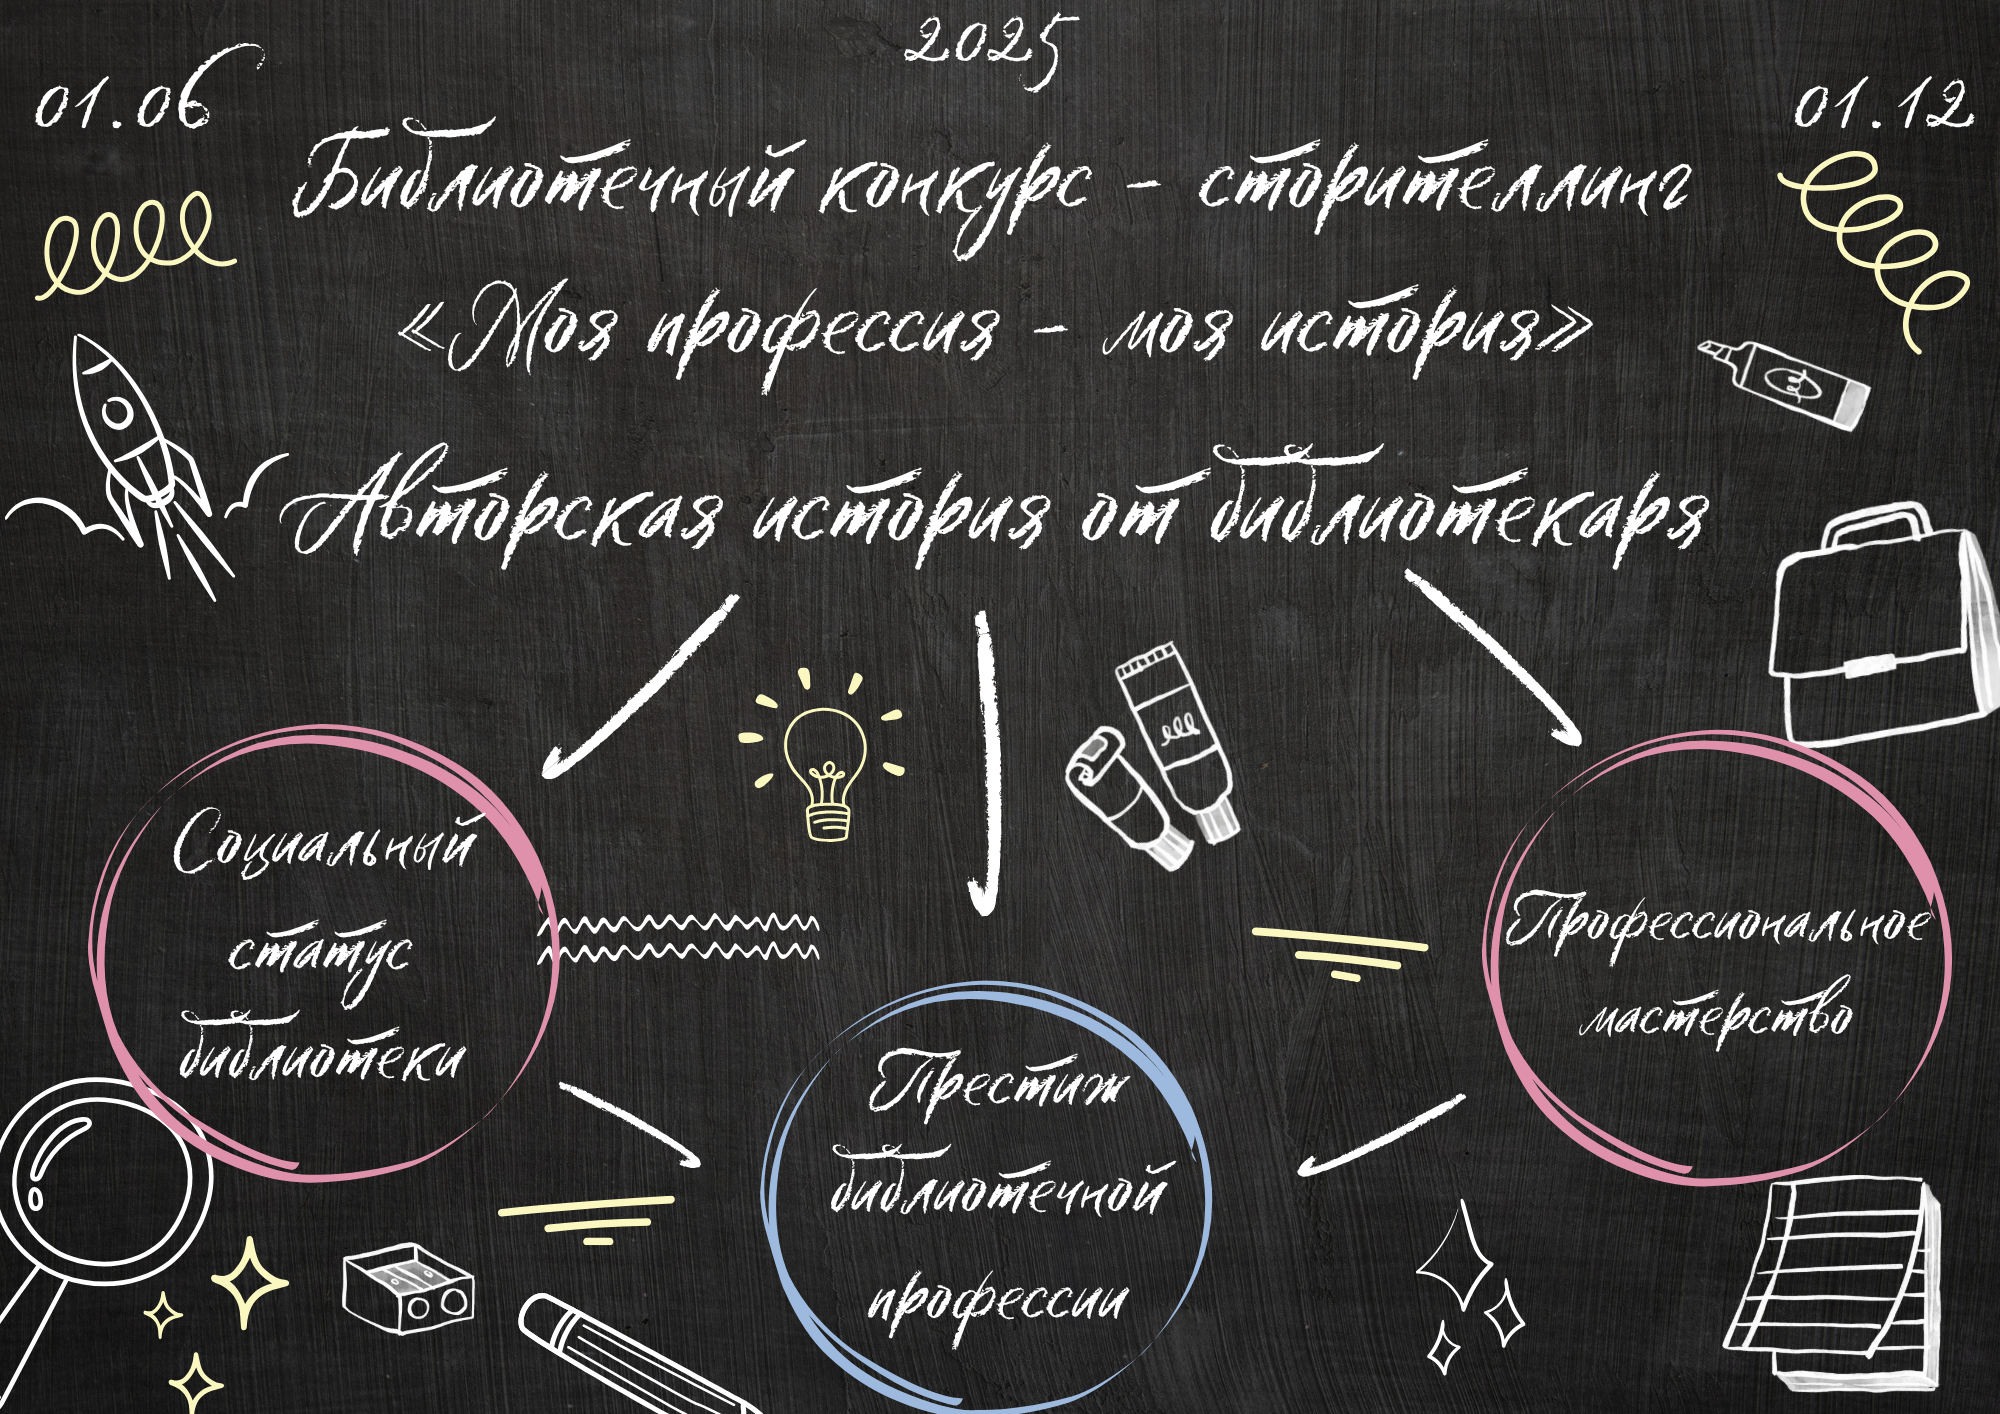 2025
01.06
01.12
Библиотечный конкурс - сторителлинг
«Моя профессия - моя история»
Авторская история от библиотекаря
Социальный
статус
библиотеки
Престиж
библиотечной
профессии
Профессиональное
мастерство